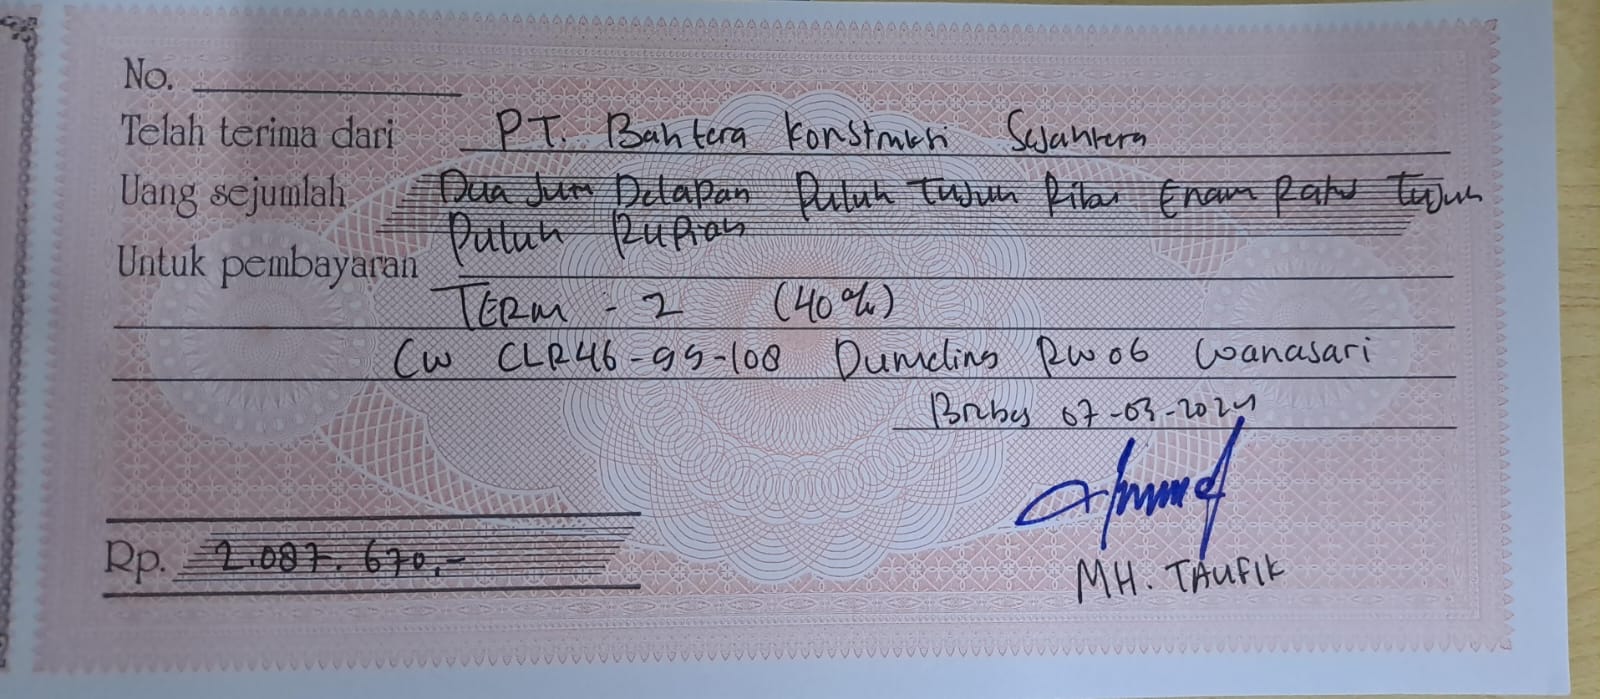 No.
Telah terima dari PT. Bahtera Konstruksi Sejahtera
Uang sejumlah Dua Juta Delapan Puluh Tujuh Ribu Enam Ratus Tujuh
Puluh Rupiah
Untuk pembayaran
TERM - 2 (40%)
CW CLR46-99-108 Dumeling RW06 Wanasari
Brebes 07-03-2024
Rp. 2.087.670,-
MH. TAUFIK